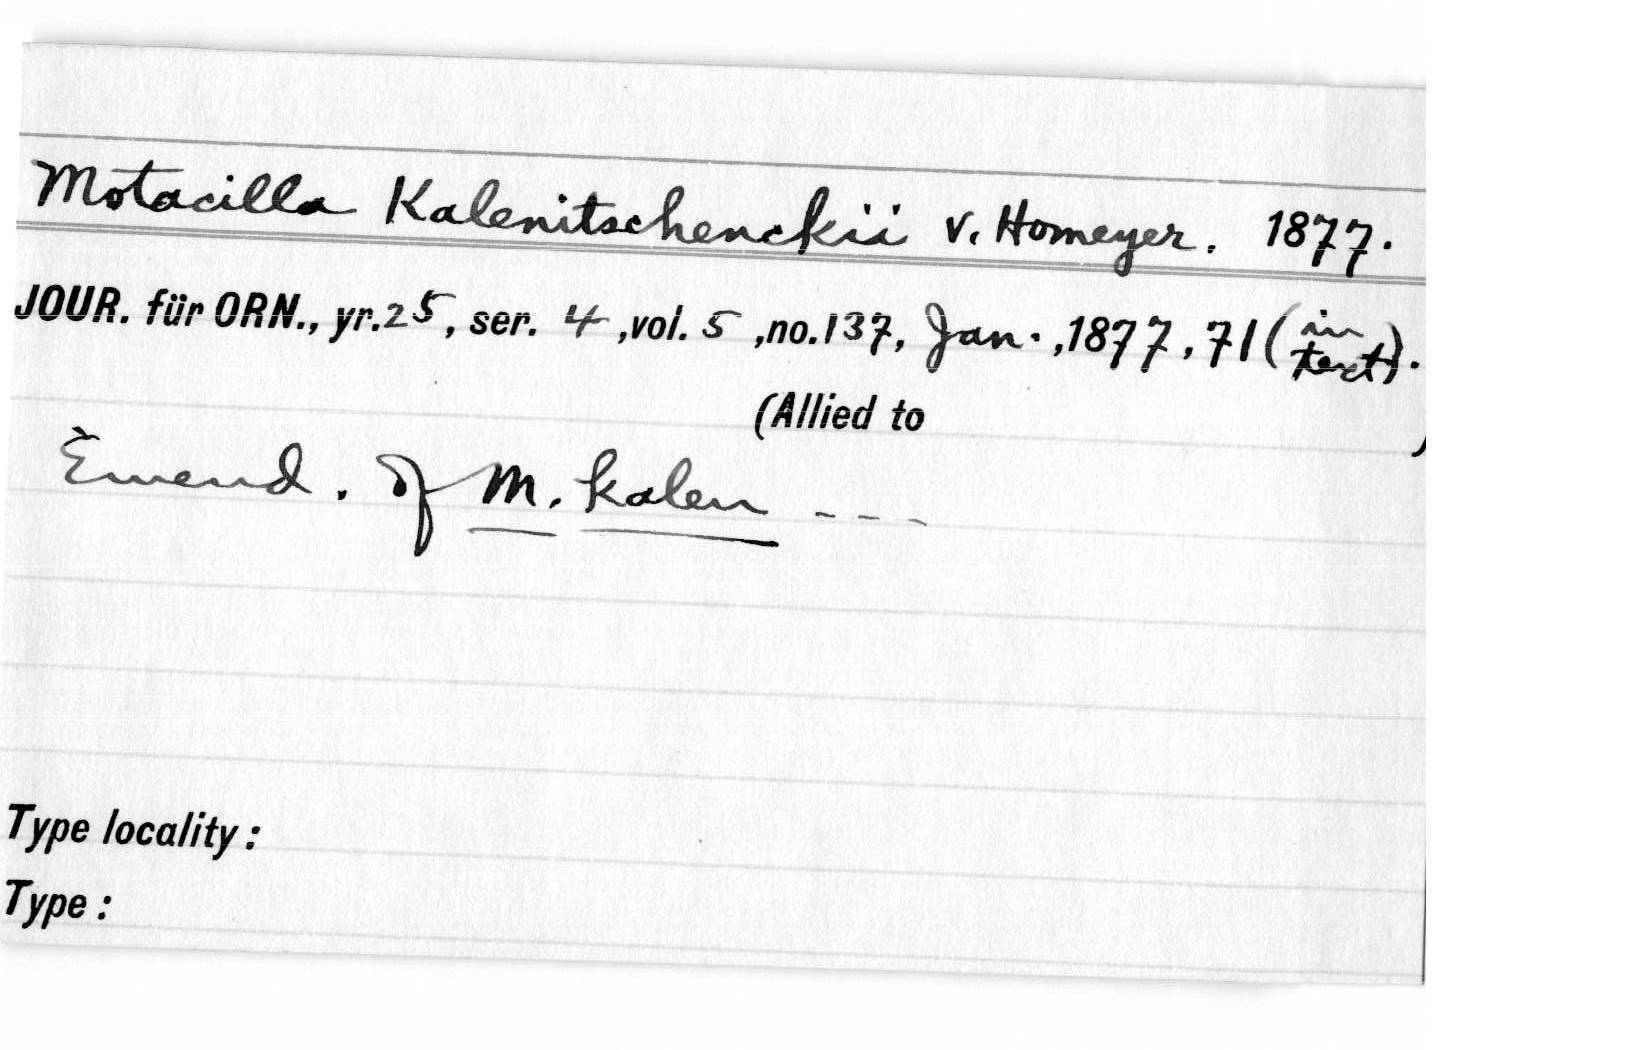 Motacilla Kalenitschenckii v. Homeyer. 1877.
JOUR. für ORN., yr.25, ser. 4, vol. 5, no.137, Jan., 1877, 71 (in text).
(Allied to )
Emend. of M. kalen ---
Type locality:
Type: